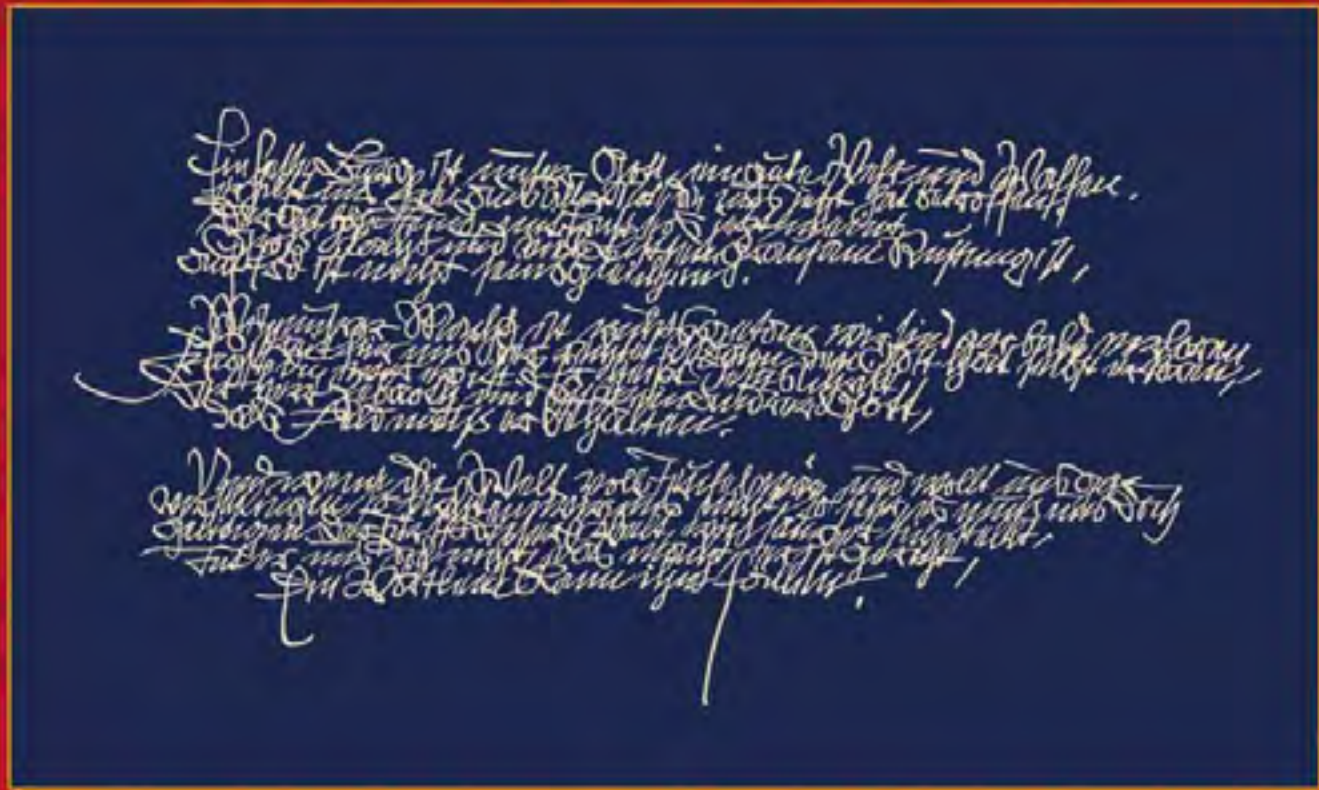 Ein feste Burg ist unser Gott, ein gute Wehr und Waffen.
Er hilft uns frei aus aller Not, die uns itzt hat betroffen.
Der alt böse Feind, mit Ernst ers
Groß Macht und viel List sein grausam Rüstung ist,
auf Erd ist nichts seinsgleichen.
Mit unsrer Macht ist nichts getan, wir sind gar bald verloren
Es streit für uns der rechte Mann, den Gott hat selbst erkoren,
Fragst du wer der ist? Er heißt Jesus Christ,
Der Herr Zebaoth und ist kein andrer Gott,
Das Feld muß er behalten.
Und wenn die Welt voll Teufel wär und wollt uns gar
verschlingen, so fürchten wir uns nicht so sehr, es muß uns doch
gelingen. Der Fürst dieser Welt, wie saur er sich stellt,
tut er uns doch nicht, das macht er ist gericht,
Ein Wörtlein kann ihn fällen.